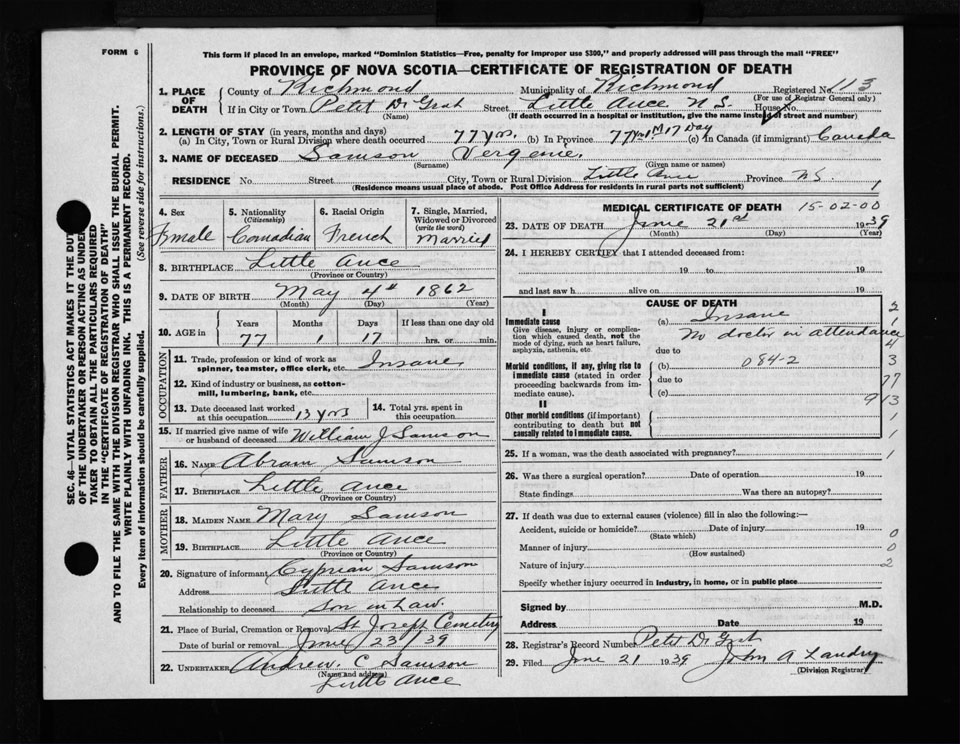 FORM 6
This form if placed in an envelope, marked "Dominion Statistics—Free, penalty for improper use $300," and properly addressed will pass through the mail "FREE"
PROVINCE OF NOVA SCOTIA—CERTIFICATE OF REGISTRATION OF DEATH
1. PLACE OF DEATH
County of Richmond Municipality of Richmond Registered No. 113
(For use of Registrar General only)
If in City or Town Petit De Grat Street Little Ance N S. House No.
(Name) (If death occurred in a hospital or institution, give the name instead of street and number)
2. LENGTH OF STAY (in years, months and days)
(a) In City, Town or Rural Division where death occurred 77 yrs. (b) In Province 77 yrs 1 M 17 Day (c) In Canada (if immigrant) Canada
3. NAME OF DECEASED Samson Vergenie
(Surname) (Given name or names)
RESIDENCE No. Street City, Town or Rural Division Little Ance Province N S. 1
(Residence means usual place of abode. Post Office Address for residents in rural parts not sufficient)
4. Sex Female
5. Nationality (Citizenship) Connadian
6. Racial Origin French
7. Single, Married, Widowed or Divorced (write the word) Married
8. BIRTHPLACE Little Ance
(Province or Country)
9. DATE OF BIRTH May 4th 1862
(Month) (Day) (Year)
10. AGE in Years Months Days If less than one day old
77 1 17 hrs. or min.
OCCUPATION
11. Trade, profession or kind of work as spinner, teamster, office clerk, etc. Insane
12. Kind of industry or business, as cotton-mill, lumbering, bank, etc.
13. Date deceased last worked at this occupation 13 yrs
14. Total yrs. spent in this occupation.
15. If married give name of wife or husband of deceased William J Samson
FATHER
16. NAME Abram Samson
17. BIRTHPLACE Little Ance
(Province or Country)
MOTHER
18. MAIDEN NAME Mary Samson
19. BIRTHPLACE Little Ance
(Province or Country)
20. Signature of informant Cyprian Samson
Address Little Ance
Relationship to deceased Son in Law.
21. Place of Burial, Cremation or Removal St Joseph Cemetery
Date of burial or removal June 23/39
22. UNDERTAKER Andrew. C Samson
(Name and address)
Little Ance
MEDICAL CERTIFICATE OF DEATH 15-02-00
23. DATE OF DEATH June 21st 1939
(Month) (Day) (Year)
24. I HEREBY CERTIFY that I attended deceased from:
19 to 19
and last saw h alive on 19
CAUSE OF DEATH
I
Immediate cause
Give disease, injury or complication which caused death, not the mode of dying, such as heart failure, asphyxia, asthenia, etc
(a) Insane
No doctor in attendance
due to
Morbid conditions, if any, giving rise to immediate cause (stated in order proceeding backwards from immediate cause).
(b) 084-2
due to
(c)
II
Other morbid conditions (if important) contributing to death but not causally related to immediate cause.
25. If a woman, was the death associated with pregnancy?
26. Was there a surgical operation? Date of operation 19
State findings Was there an autopsy?
27. If death was due to external causes (violence) fill in also the following:—
Accident, suicide or homicide? Date of injury 19
(State which)
Manner of injury
(How sustained)
Nature of injury
Specify whether injury occurred in industry, in home, or in public place
Signed by M.D.
Address Date 19
28. Registrar's Record Number Petit De Grat
29. Filed June 21 1939 John A Landry
(Division Registrar)
SEC. 46—VITAL STATISTICS ACT MAKES IT THE DUTY
OF THE UNDERTAKER OR PERSON ACTING AS UNDER-
TAKER TO OBTAIN ALL THE PARTICULARS REQUIRED
IN THE "CERTIFICATE OF REGISTRATION OF DEATH"
AND TO FILE THE SAME WITH THE DIVISION REGISTRAR WHO SHALL ISSUE THE BURIAL PERMIT.
WRITE PLAINLY WITH UNFADING INK. THIS IS A PERMANENT RECORD.
Every item of information should be carefully supplied. (See reverse side for instructions.)